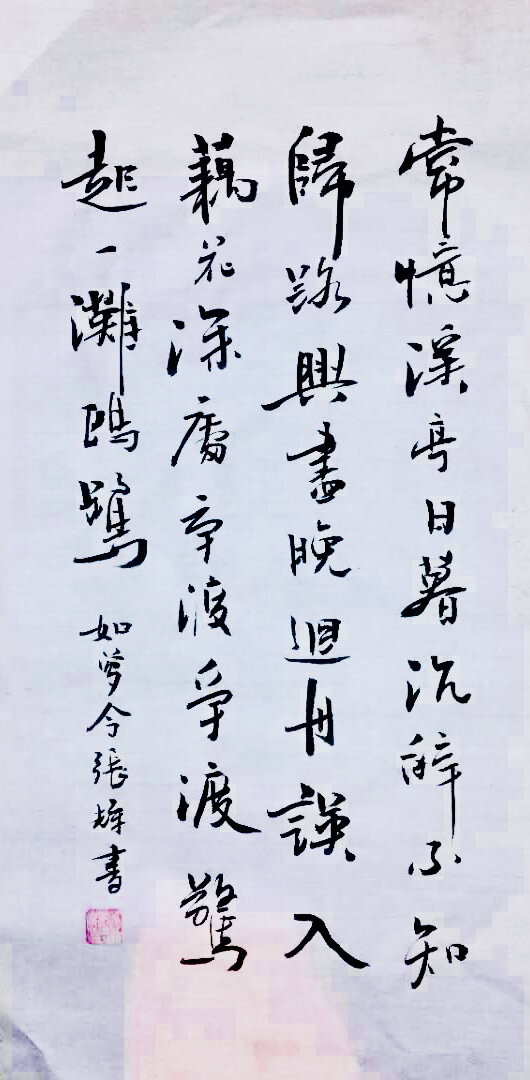 常憶溪亭日暮沉醉不知
歸路興盡晚迴舟誤入
藕花深處爭渡爭渡驚
起一灘鷗鷺
如夢令張書